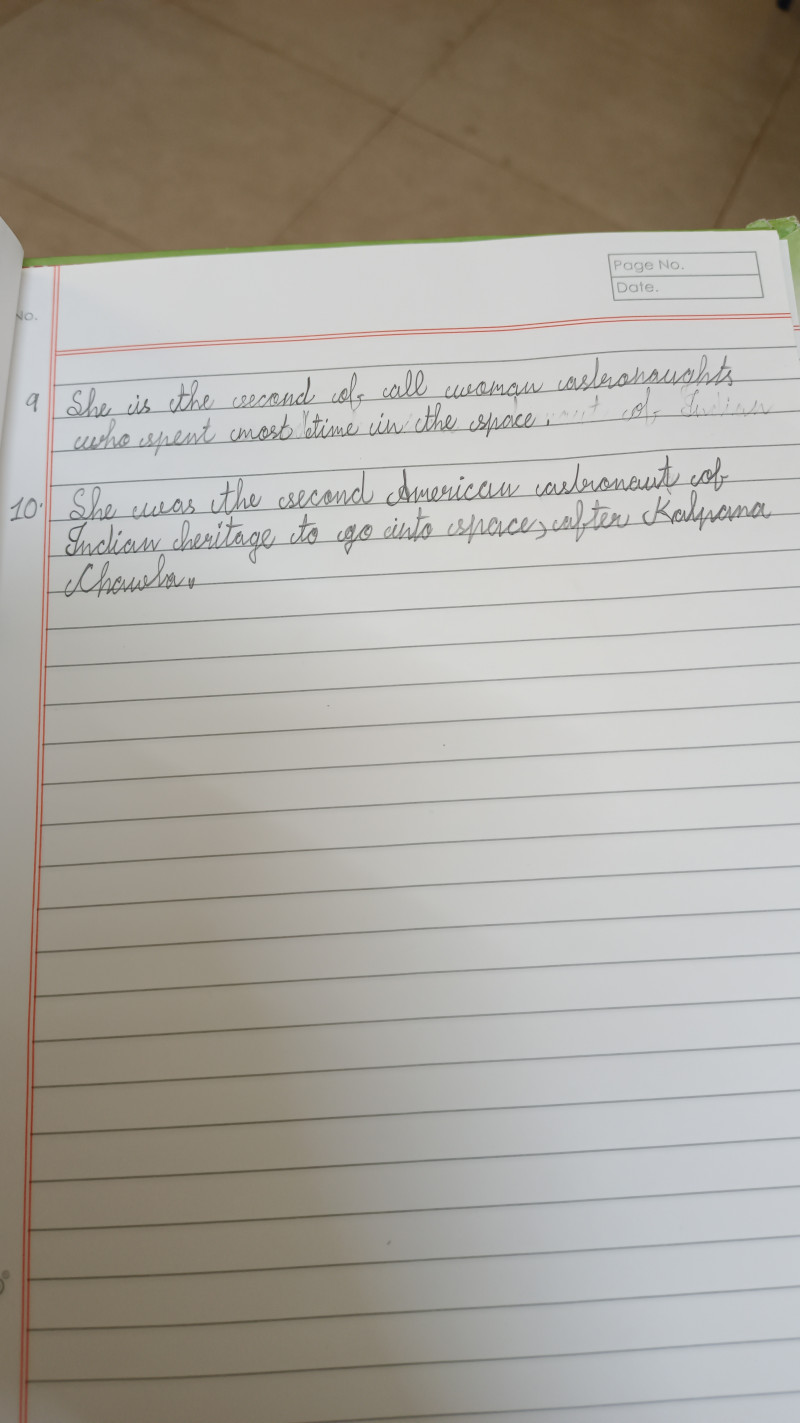 Page No.
Date.
No.
9 She is the second of all woman astronaughts
who spent most time in the space.
10. She was the second American astronaut of
Indian heritage to go into space, after Kalpana
Chawla.